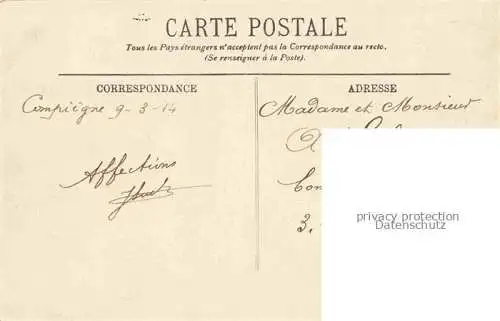 CARTE POSTALE
Tous les Pays étrangers n'acceptent pas la Correspondance au recto.
(Se renseigner à la Poste).
CORRESPONDANCE
ADRESSE
Compiègne 9-3-14
Madame et Monsieur
Affections
3.
privacy protection
Datenschutz